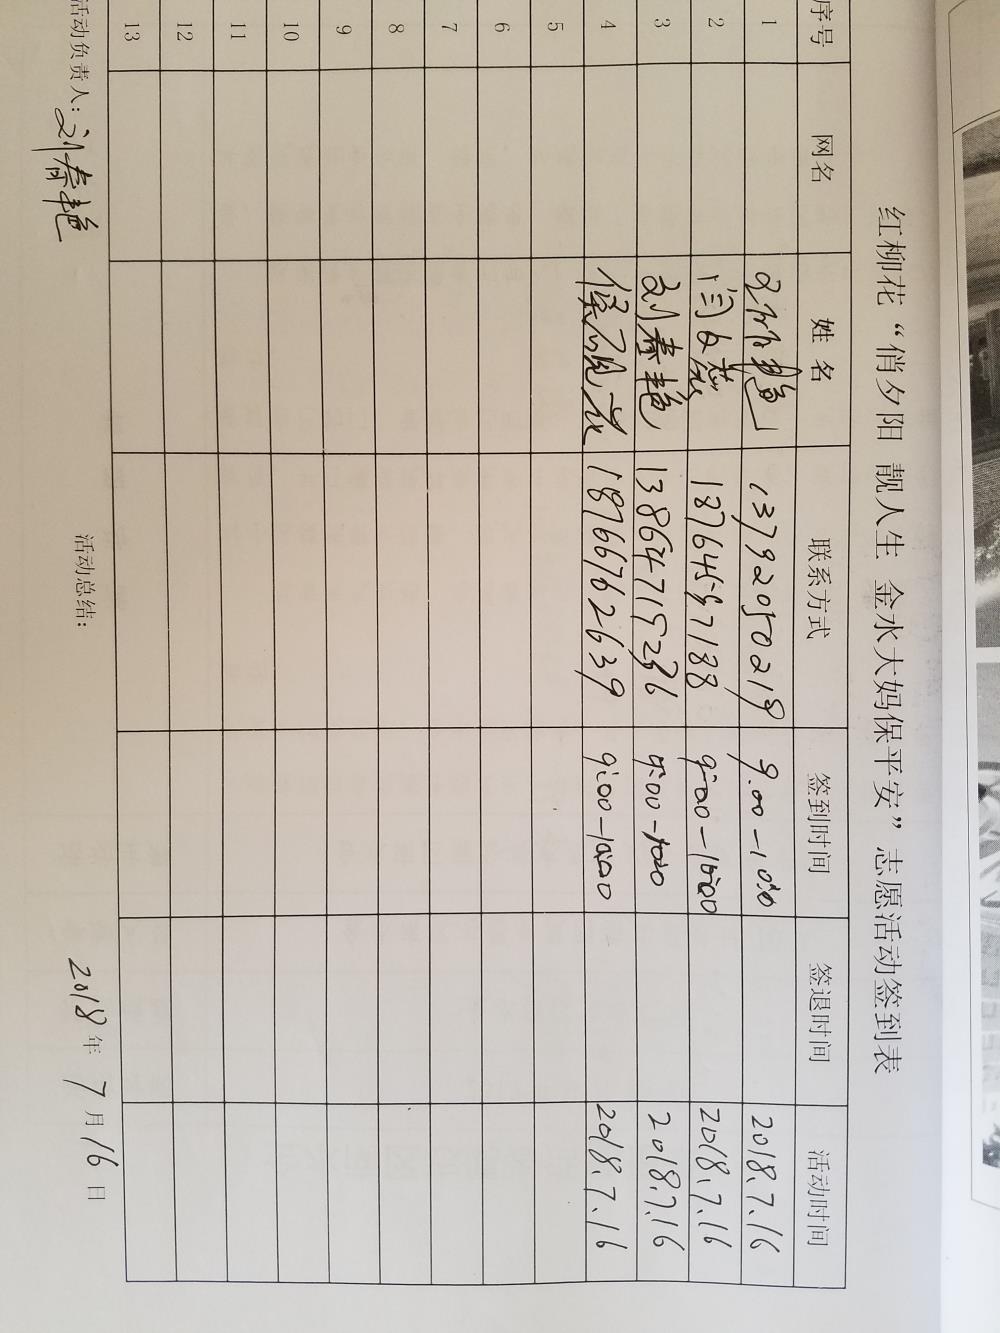 红柳花“俏夕阳 靓人生 金水大妈保平安”志愿活动签到表
序号 网名 姓名 联系方式 签到时间 签退时间 活动时间
1 13792050219 9:00-10:00 2018.7.16
2 闫文燕 18764597188 9:00-10:00 2018.7.16
3 刘春艳 13864715236 9:00-1000 2018.7.16
4 18766762639 9:00-10:00 2018.7.16
5
6
7
8
9
10
11
12
13
活动负责人: 刘春艳 活动总结: 2018年 7月16日